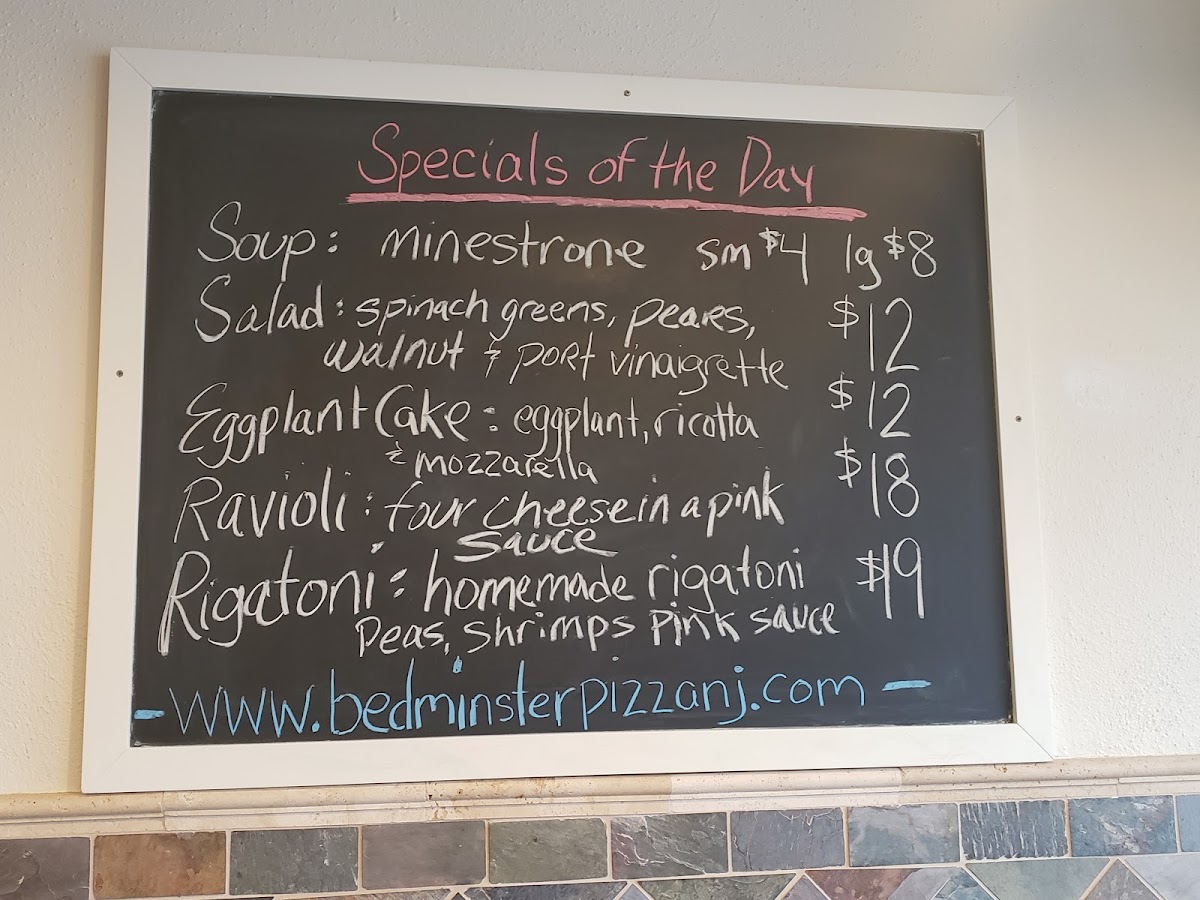 Specials of the Day
Soup: minestrone sm $4 lg $8
Salad: spinach greens, peares, $12
walnut & port vinaigrette
Eggplant Cake: eggplant, ricotta $12
& mozzarella
Ravioli: four cheese in a pink $18
sauce
Rigatoni: homemade rigatoni $19
Peas, shrimps pink sauce
- www.bedminsterpizzanj.com -